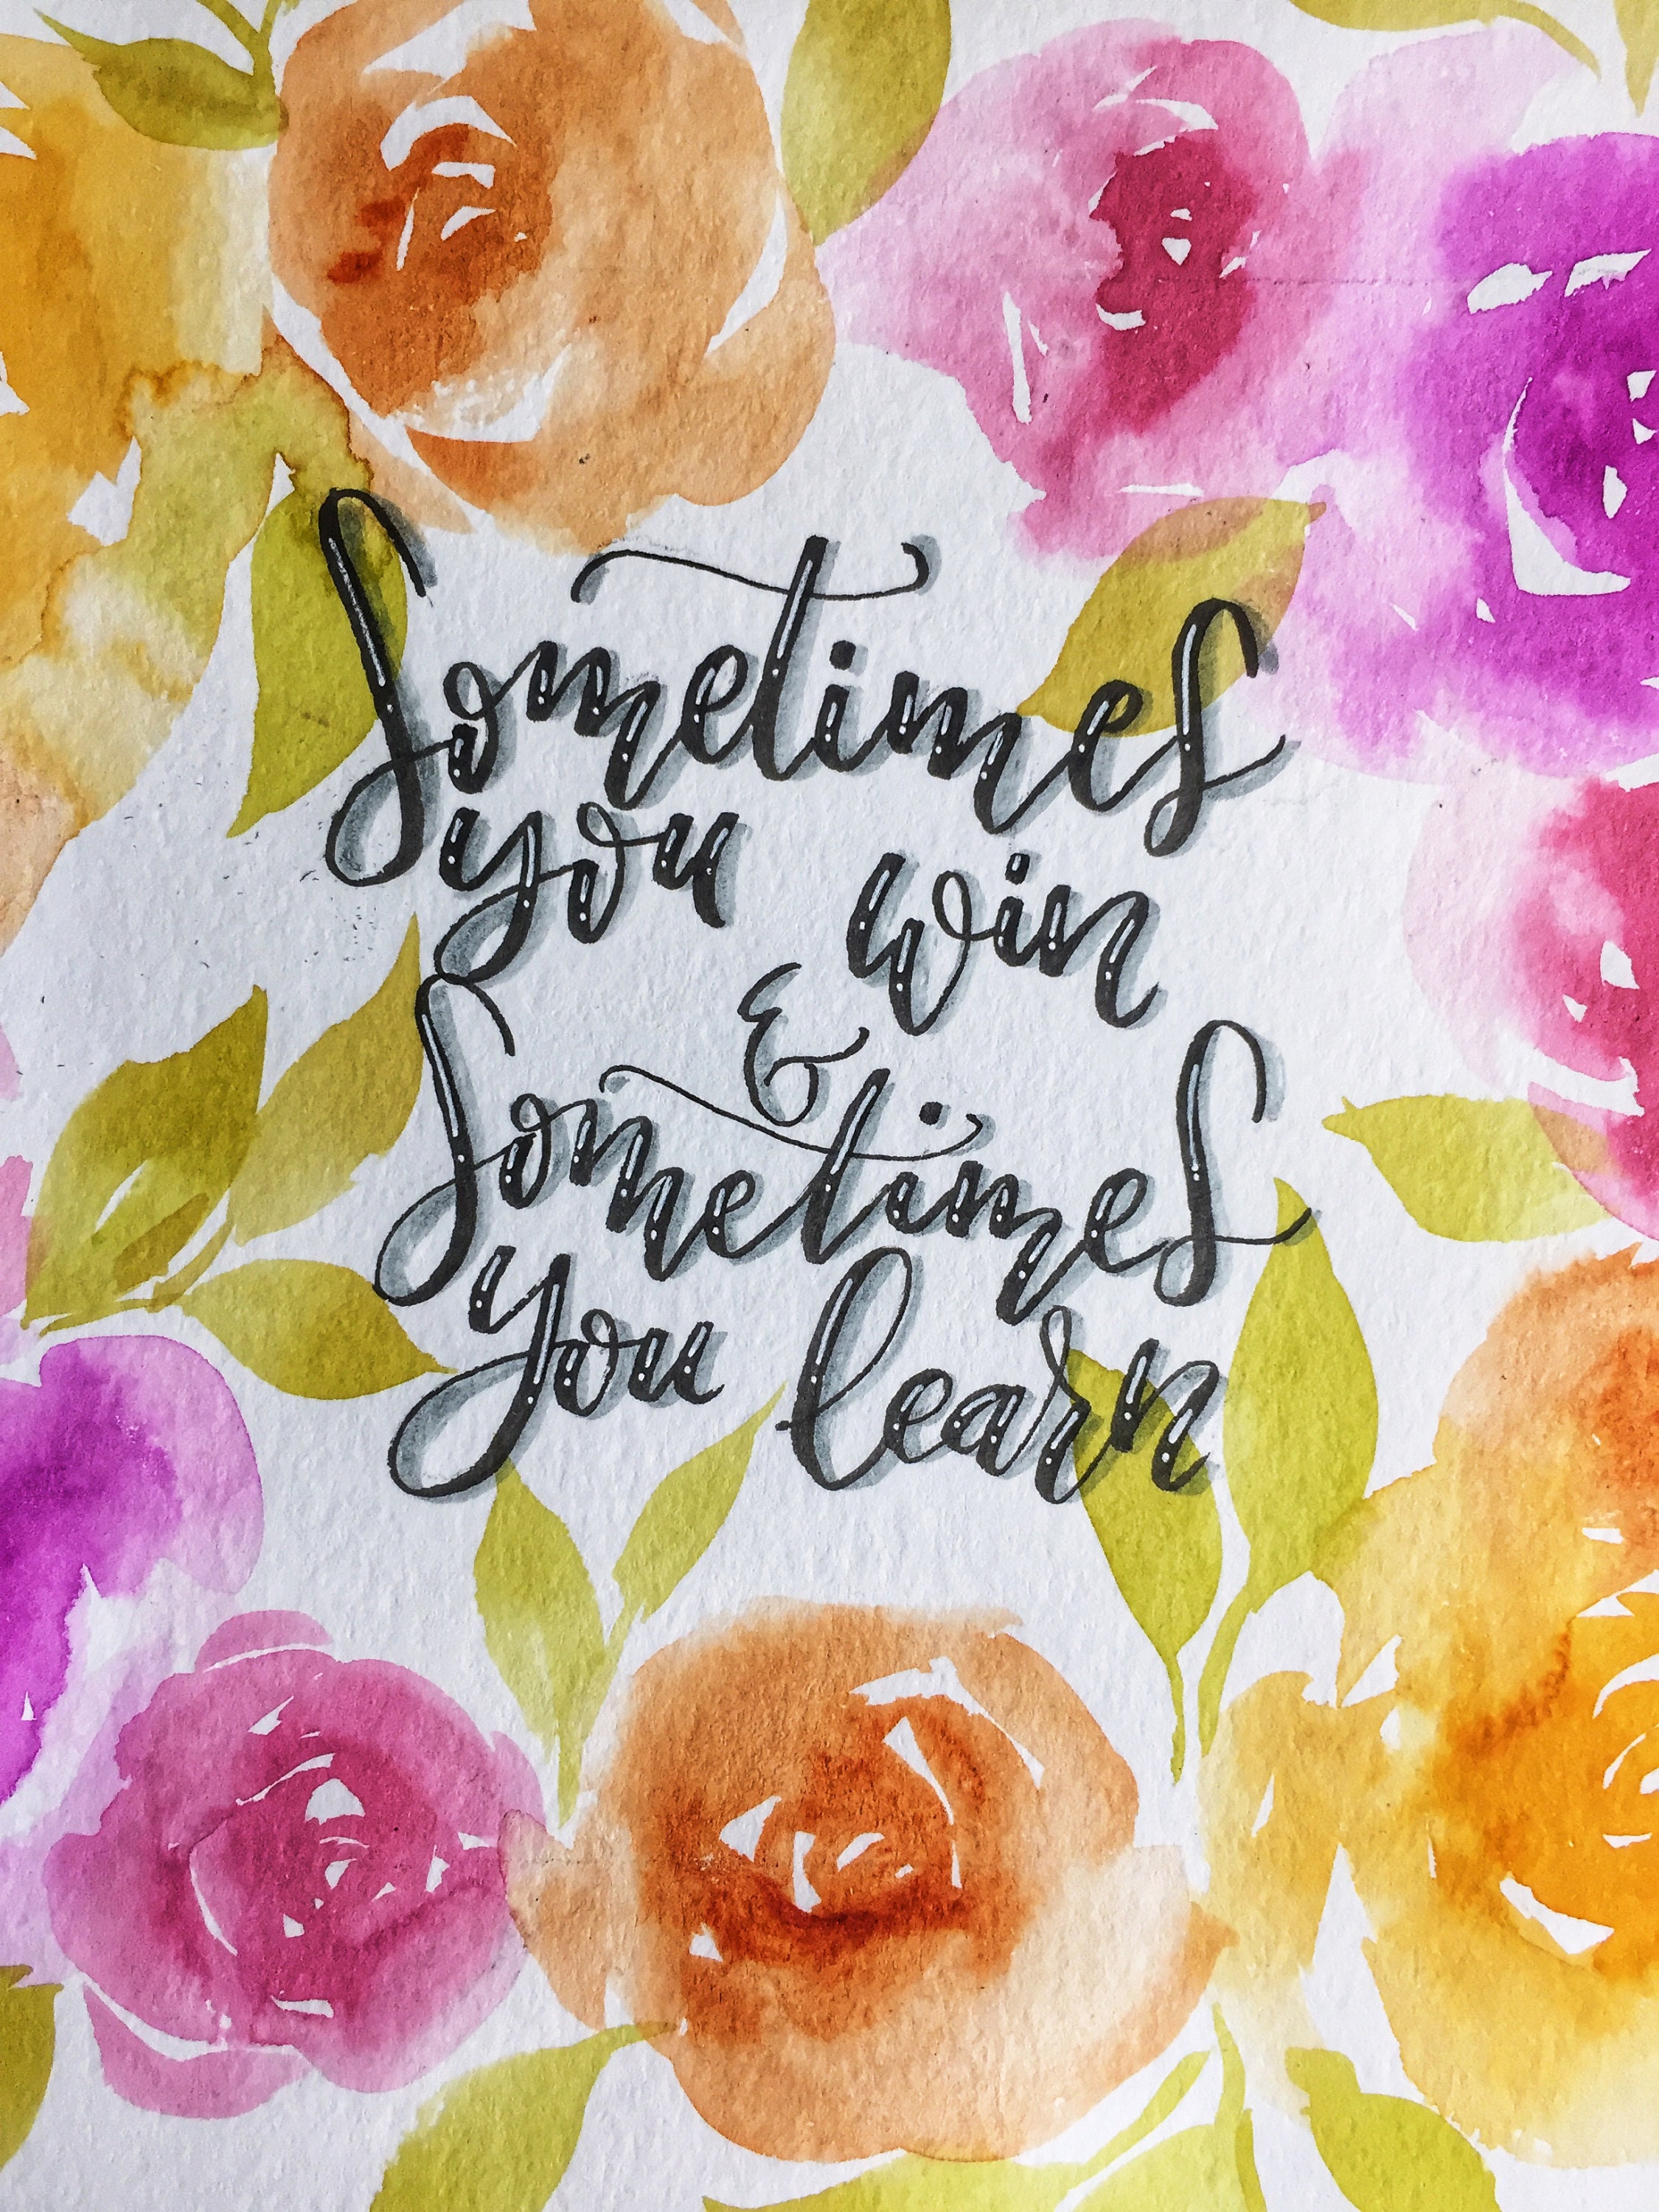 Sometimes
you win
&
Sometimes
you learn